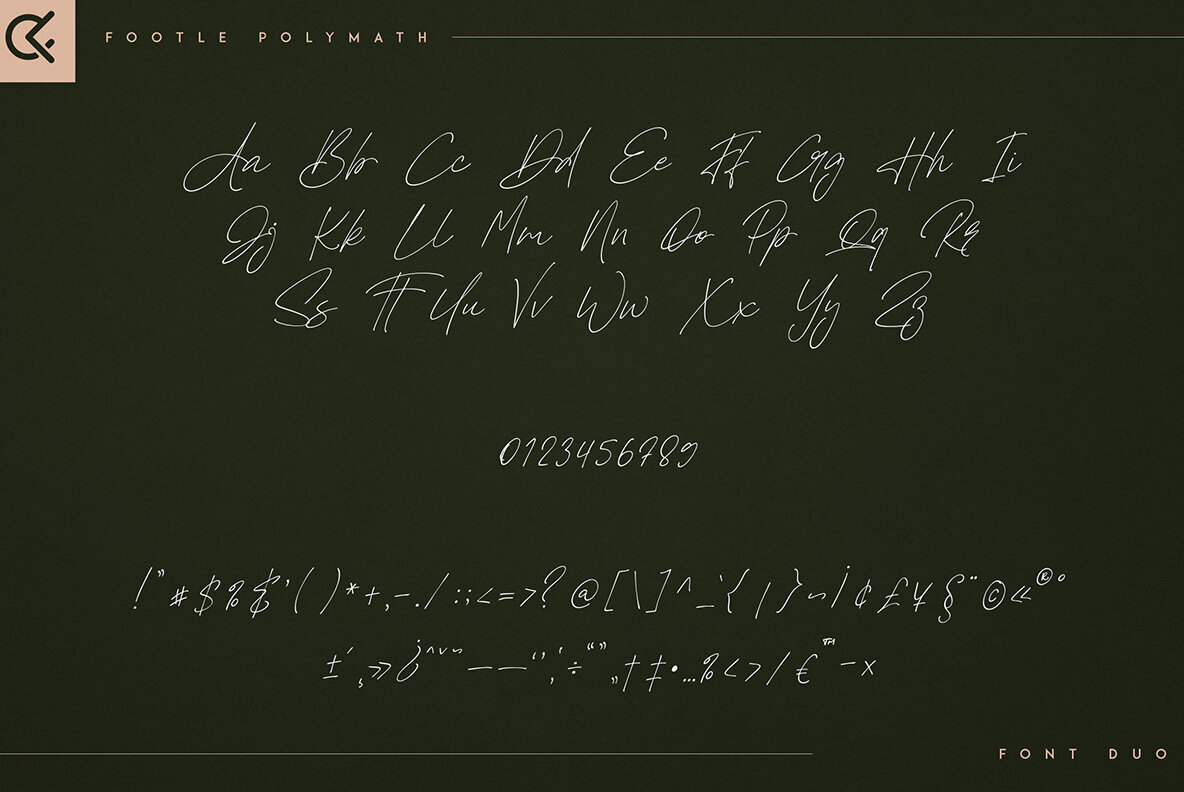 FOOTLE POLYMATH
Aa Bb Cc Dd Ee Ff Gg Hh Ii
Jj Kk Ll Mm Nn Oo Pp Qq Rr
Ss Tt Uu Vv Ww Xx Yy Zz
0123456789
!"#$%&'()*+,-./:;<=>?@[\]^_`{|}~¡¢£¥§¨©«®°
±´¸»¿ˆˇ˘~–—‘’‚‛÷“”„†‡•…‰‹›⁄€™−×
FONT DUO